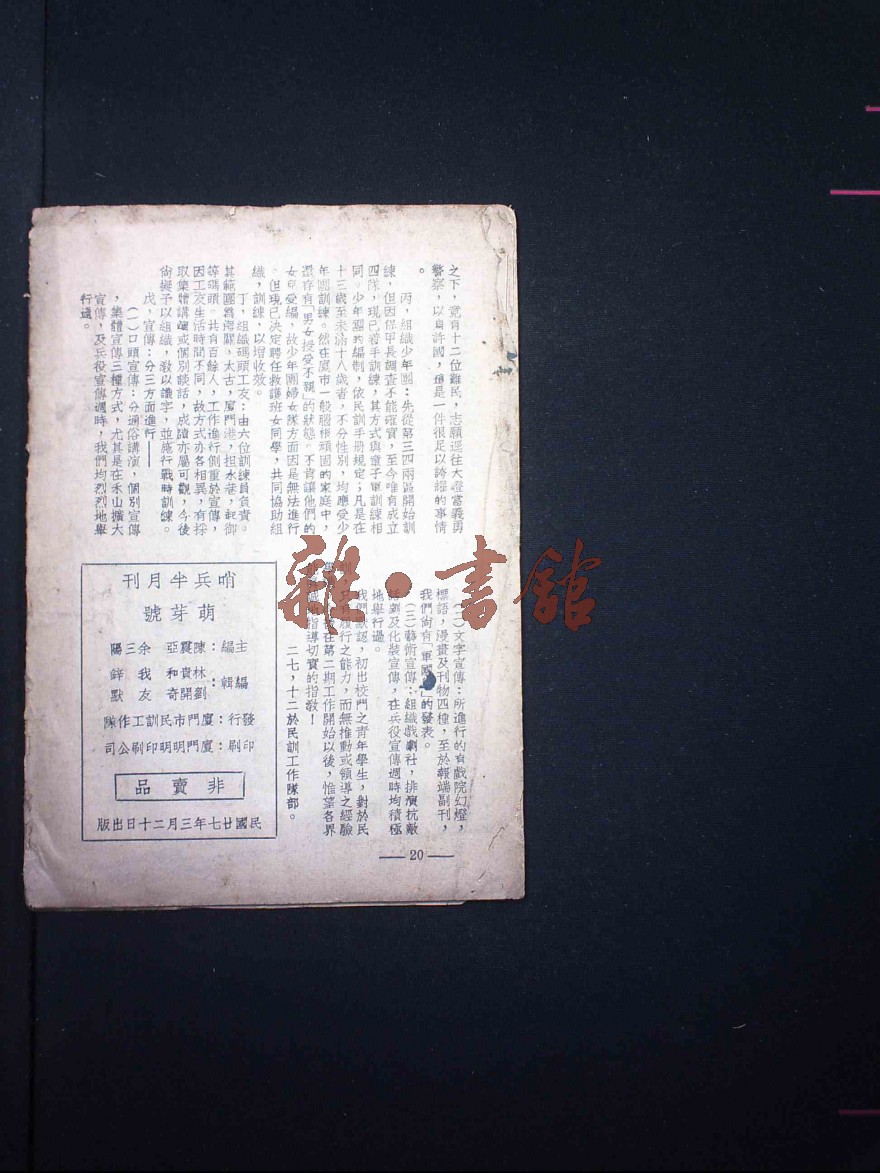 之下，竟有十二位難民，志願遷往大嶝當義勇
警察，以身許國，這是一件很足以誇耀的事情
。
丙，組織少年團：先從第三四兩區開始訓
練，但因保甲長調查不能確實，至今唯有成立
四隊，現已着手訓練，其方式與童子軍訓練相
同。少年團的編制，依民訓手册規定；凡是在
十三歲至未滿十八歲者，不分性別，均應受少
年團訓練。然在廈市一般腦根頑固的家庭中，
還存有「男女授受不親」的狀態。不肯讓他們的
女兒受編，故少年團婦女隊方面因是無法進行
。但現已決定聘任救護班女同學，共同協助組
織，訓練，以增收效。
丁，組織碼頭工友：由六位訓練員負責。
其範圍爲海關，太古，廈門港，担水巷，起卸
等碼頭。共有百餘人，工作進行側重於宣傳，
因工友生活時間不同，故方式亦各相異，有採
取集體講演或個別談話，成績亦屬可觀，今後
尚擬予以組織，敎以識字，並施行戰時訓練。
戊，宣傳：分三方面進行——
（一）口頭宣傳：分通俗講演，個別宣傳
，集體宣傳三種方式，尤其是在禾山擴大
宣傳，及兵役宣傳週時，我們均烈烈地舉
行過。
（二）文字宣傳：所進行的有戲院幻燈，
標語，漫畫及刊物四種，至於報端副刊，
我們尚有「軍國 」的發表。
（三）藝術宣傳：組織戲劇社，排演抗敵
話劇及化裝宣傳，在兵役宣傳週時均積極
地舉行過。
我們默認，初出校門之青年學生，對於民
只有履行之能力，而無推動或領導之經驗
在第二期工作開始以後，惟望各界
指導切實的指敎！
二七，十二於民訓工作隊部。
哨兵半月刊
萌芽號
主編：陳震亞 余三陽
編輯：林貴和 我鋅
劉開奇 友默
發行：廈門市民訓工作隊
印刷：廈門明明印刷公司
非賣品
民國廿七年三月二十日出版
—— 20 ——
雜·書館